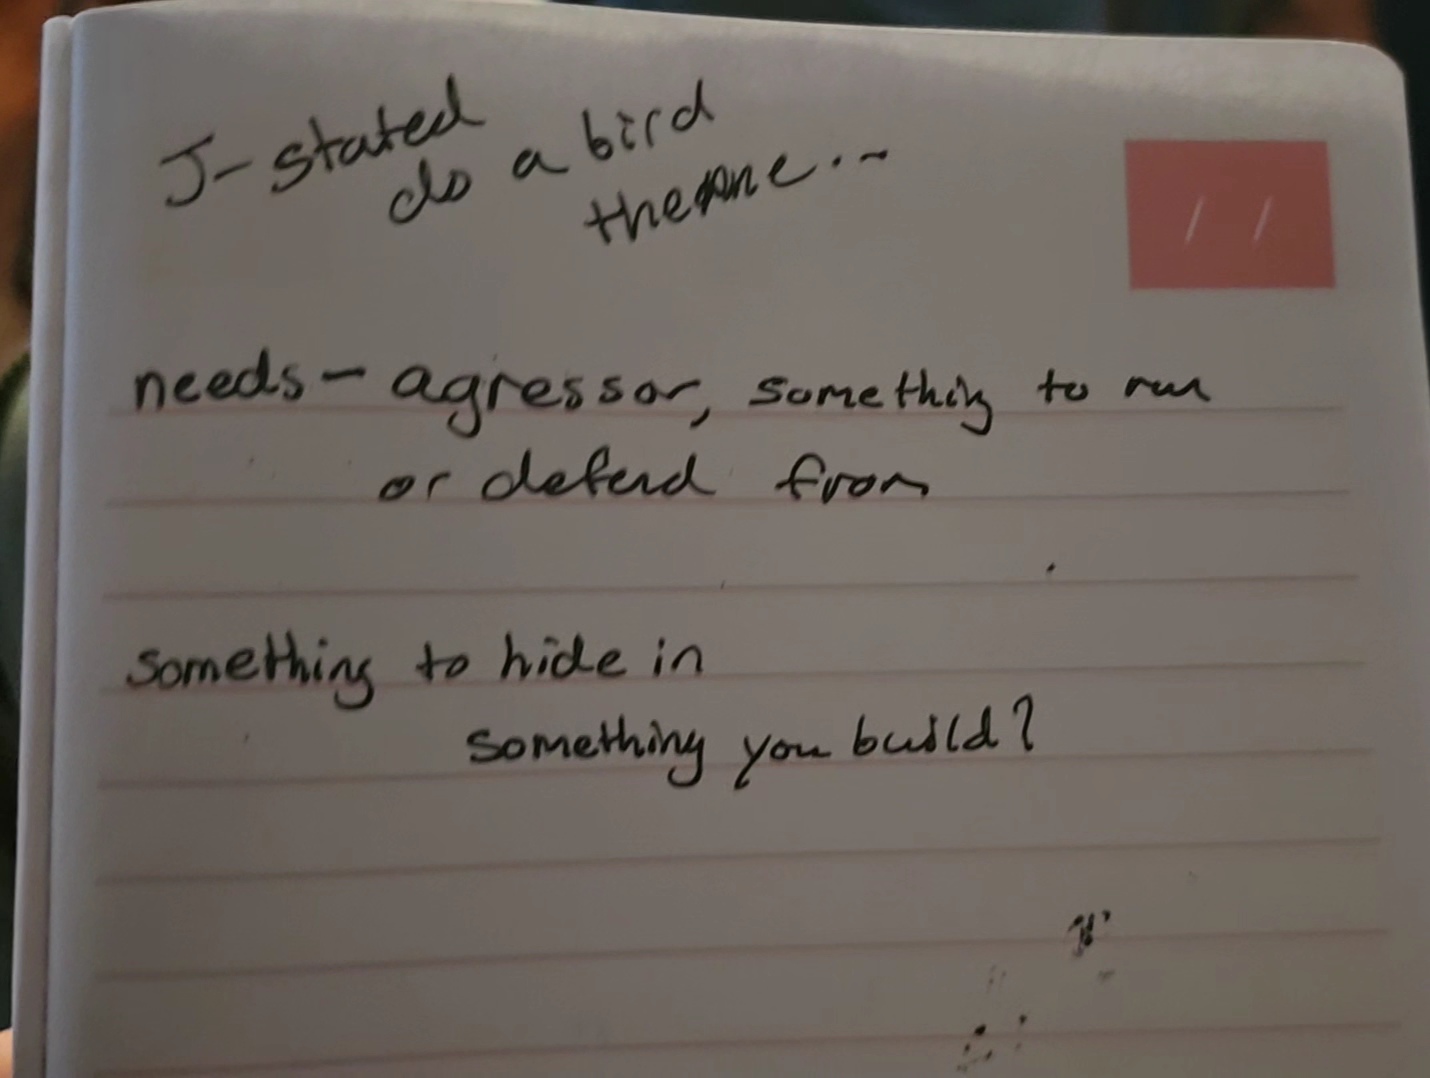 J- stated
do a bird
theme...
needs - agressor, something to run
or defend from
something to hide in
something you build?